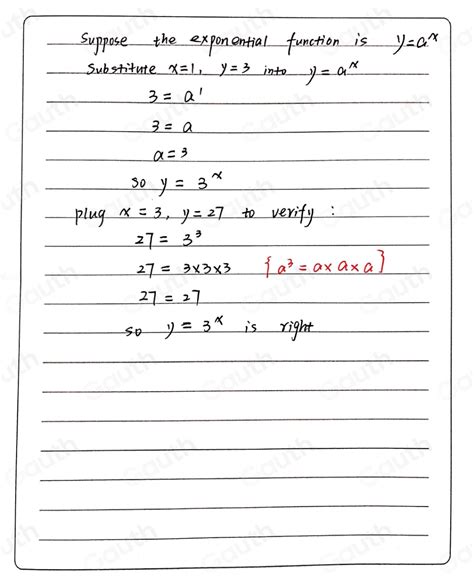 Suppose the exponential function is y=aˣ
Substitute x=1, y=3 into y=aˣ
3 = a¹
3 = a
a=3
so y = 3ˣ
plug x = 3, y=27 to verify :
27 = 3³
27 = 3×3×3 {a³ = a×a×a}
27 = 27
so y = 3ˣ is right